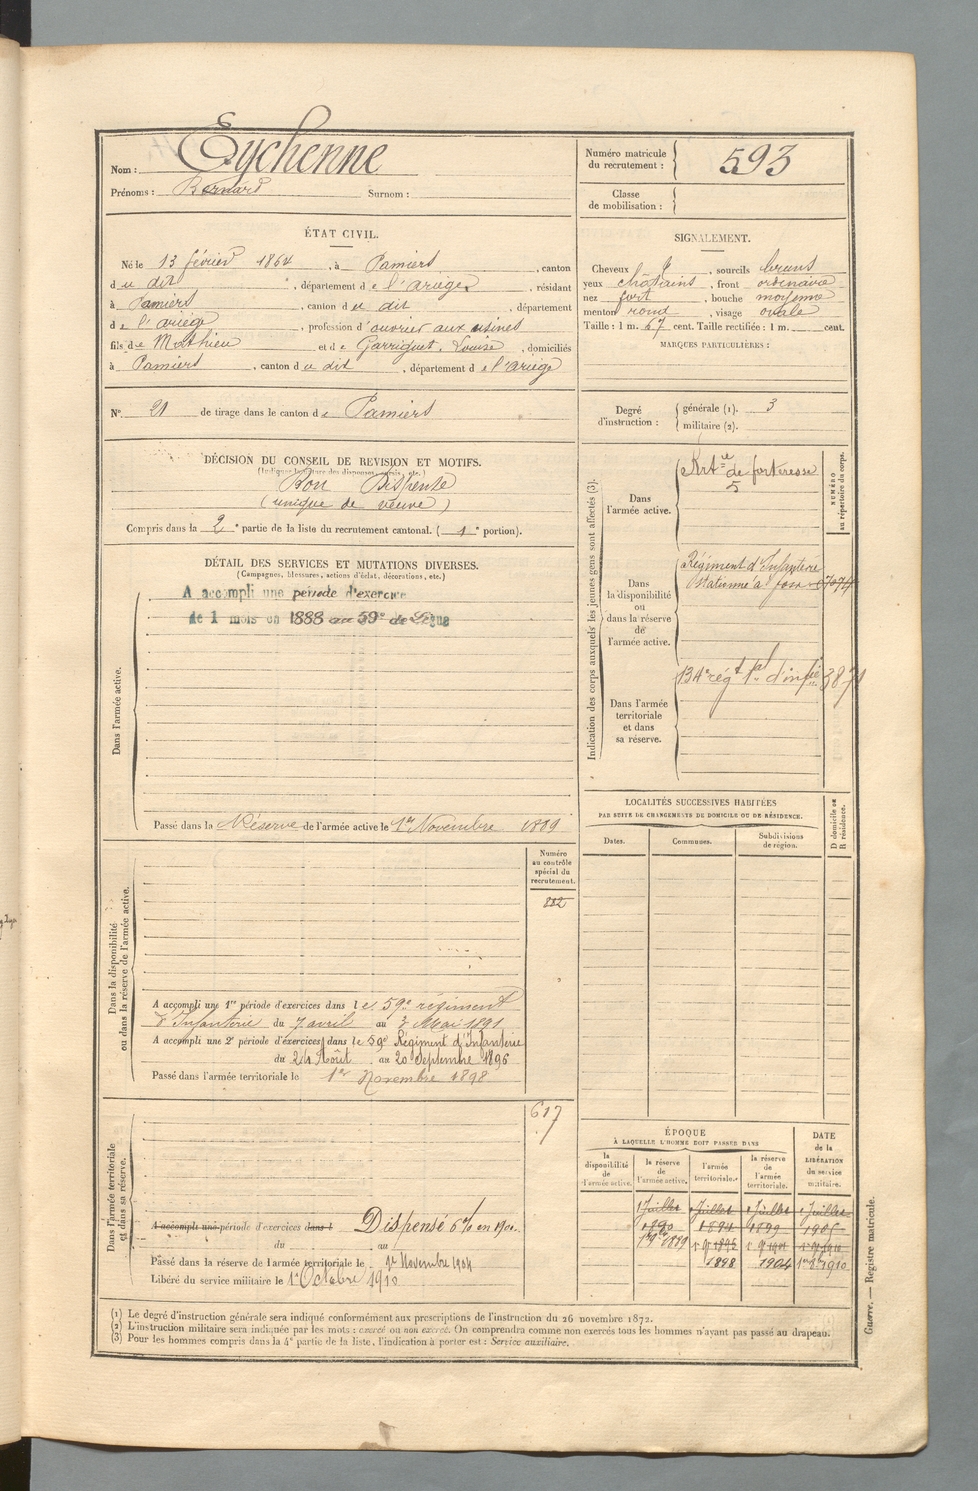 Nom : Eychenne
Prénoms : Bernard Surnom :
Numéro matricule du recrutement : 593
Classe de mobilisation :
ÉTAT CIVIL.
Né le 13 février 1864, à Pamiers, canton
du dit, département de l'ariège, résidant
à Pamiers, canton du dit, département
de l'ariège, profession d'ouvrier aux usines
fils de Mathieu et de Garriguet, Louise, domiciliés
à Pamiers, canton du dit, département de l'ariège
N° 21 de tirage dans le canton de Pamiers
SIGNALEMENT.
Cheveux , sourcils bruns
yeux châtains, front ordinaire
nez fort, bouche moyenne
menton rond, visage ovale
Taille : 1 m. 67 cent. Taille rectifiée : 1 m. cent.
MARQUES PARTICULIÈRES :
Degré d'instruction : générale (1). 3
militaire (2).
DÉCISION DU CONSEIL DE REVISION ET MOTIFS.
Bon Dispensé
(unique de veuve)
Compris dans la 2e partie de la liste du recrutement cantonal. (1e portion).
DÉTAIL DES SERVICES ET MUTATIONS DIVERSES.
(Campagnes, blessures, actions d'éclat, décorations, etc.)
Dans l'armée active.
A accompli une période d'exercice
de 1 mois en 1888 au 59e de Ligne
Passé dans la Réserve de l'armée active le 1er Novembre 1889
Indication des corps auxquels les jeunes gens sont affectés (3).
NUMÉRO au répertoire du corps.
Dans l'armée active.
Artie de forteresse
5
Dans la disponibilité ou dans la réserve de l'armée active.
Régiment d'Infanterie
stationné à foix
Dans l'armée territoriale et dans sa réserve.
134e régt tal d'infie
LOCALITÉS SUCCESSIVES HABITÉES
PAR SUITE DE CHANGEMENTS DE DOMICILE OU DE RÉSIDENCE.
D domicile ou R résidence.
Dates. Communes. Subdivisions de région.
Dans la disponibilité ou dans la réserve de l'armée active.
Numéro au contrôle spécial du recrutement.
882
A accompli une 1re période d'exercices dans le 59e régiment
d'Infanterie du 7 avril au 3 Mai 1891
A accompli une 2e période d'exercices dans le 59e Régiment d'Infanterie
du 24 Août au 20 Septembre 1896
Passé dans l'armée territoriale le 1er Novembre 1898
Dans l'armée territoriale et dans sa réserve.
617
A accompli une période d'exercices dans l Dispensé 6% en 1900.
du au
Passé dans la réserve de l'armée territoriale le 1er Novembre 1904
Libéré du service militaire le 1er Octobre 1910
ÉPOQUE
À LAQUELLE L'HOMME DOIT PASSER DANS
DATE de la LIBÉRATION du service militaire.
la disponibilité de l'armée active. la réserve de l'armée active. l'armée territoriale. la réserve de l'armée territoriale.
1 Juillet 1 Juillet 1 Juillet 1 Juillet
1890 1894 1899 1905
1898 1904
(1) Le degré d'instruction générale sera indiqué conformément aux prescriptions de l'instruction du 26 novembre 1872.
(2) L'instruction militaire sera indiquée par les mots : exercé ou non exercé. On comprendra comme non exercés tous les hommes n'ayant pas passé au drapeau.
(3) Pour les hommes compris dans la 4e partie de la liste, l'indication à porter est : Service auxiliaire.
Guerre. — Registre matricule.